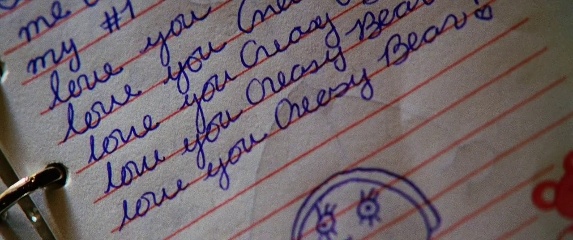 me
my #1
love you
love you Crea
love you Creasy
love you Creasy Bear
love you Creasy Bear